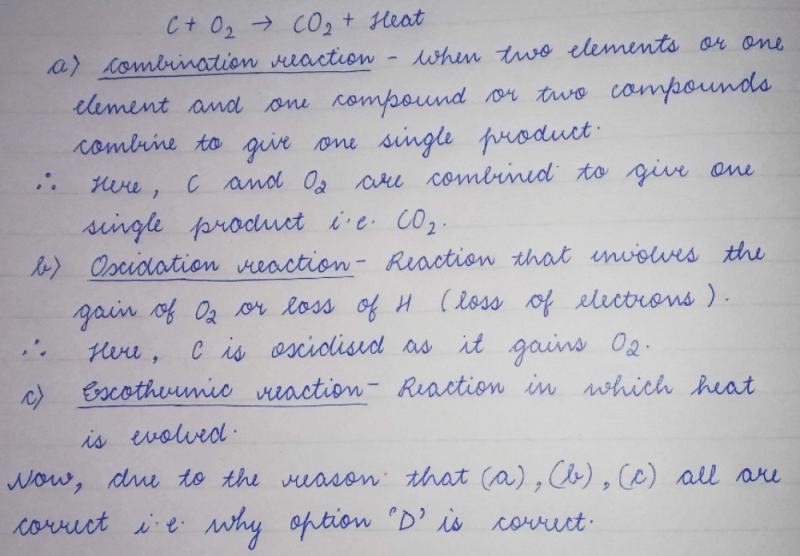 C + O₂ → CO₂ + Heat
a) combination reaction - When two elements or one
element and one compound or two compounds
combine to give one single product.
∴ Here, C and O₂ are combined to give one
single product i.e. CO₂.
b) Oxidation reaction - Reaction that involves the
gain of O₂ or loss of H (loss of electrons).
∴ Here, C is oxidised as it gains O₂.
c) Exothermic reaction - Reaction in which heat
is evolved.
Now, due to the reason that (a), (b), (c) all are
correct i.e. why option 'D' is correct.